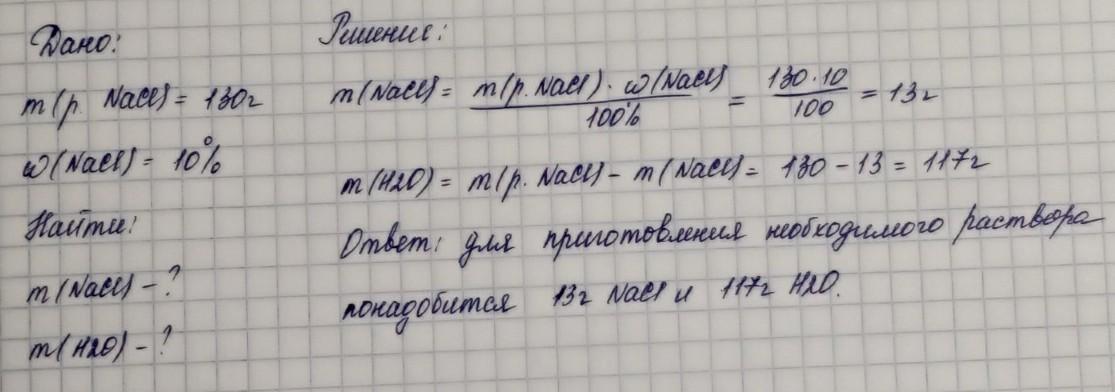 Дано:
m(р. NaCl) = 130г
ω(NaCl) = 10%
Найти:
m(NaCl) - ?
m(H2O) - ?
Решение:
m(NaCl) = m(р. NaCl) · ω(NaCl) / 100% = 130·10 / 100 = 13г
m(H2O) = m(р. NaCl) - m(NaCl) = 130 - 13 = 117г
Ответ: для приготовления необходимого раствора
понадобится 13г NaCl и 117г H2O.